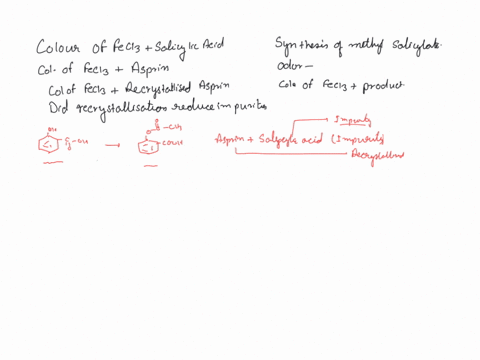 Colour of FeCl3 + Salicylic Acid
Col. of FeCl3 + Asprin
Col of FeCl3 + Recrystallised Asprin
Did recrystallisation reduce impurites
Synthesis of methyl Salicylate
Odor –
Col. of FeCl3 + product
Impurity
OH
C-OH
O
O
C-CH3
COOH
Asprin + Salicylic acid (Impurity)
Recrystallised